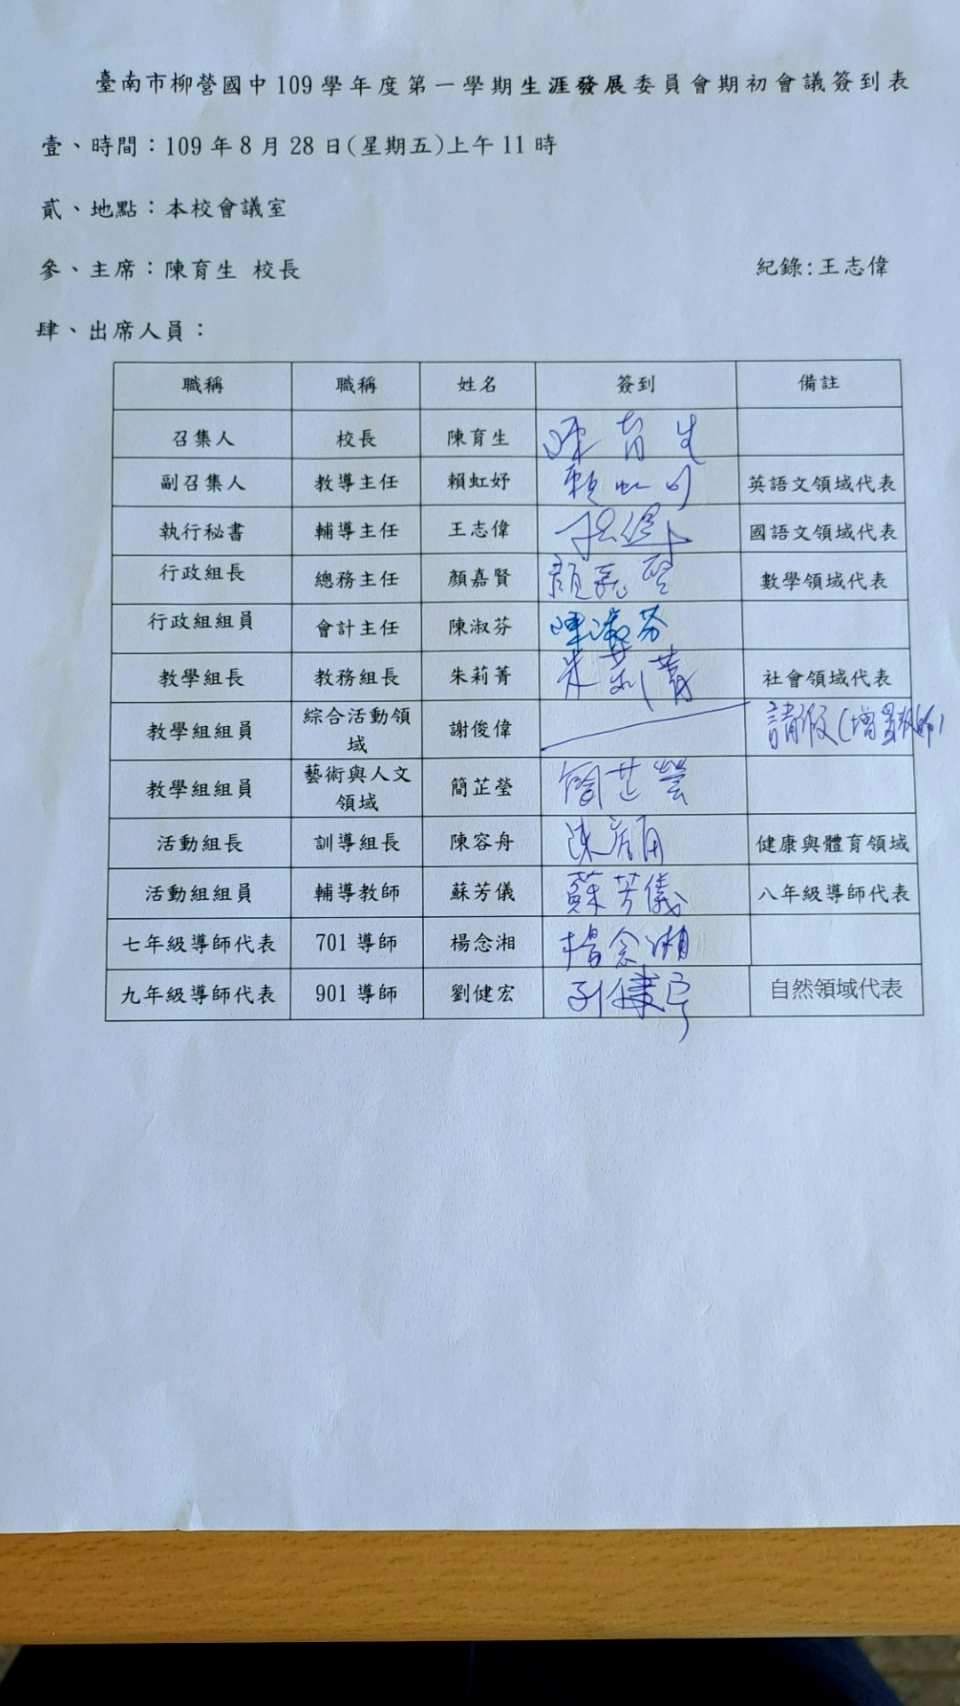 臺南市柳營國中 109 學年度第一學期生涯發展委員會期初會議簽到表
壹、時間：109 年 8 月 28 日(星期五)上午 11 時
貳、地點：本校會議室
參、主席：陳育生 校長 紀錄:王志偉
肆、出席人員：
職稱 職稱 姓名 簽到 備註
召集人 校長 陳育生 陳育生
副召集人 教導主任 賴虹妤 賴虹 英語文領域代表
執行秘書 輔導主任 王志偉 國語文領域代表
行政組長 總務主任 顏嘉賢 顏嘉賢 數學領域代表
行政組組員 會計主任 陳淑芬 陳淑芬
教學組長 教務組長 朱莉菁 朱莉菁 社會領域代表
教學組組員 綜合活動領域 謝俊偉 請假(增置教師)
教學組組員 藝術與人文領域 簡芷瑩 簡芷瑩
活動組長 訓導組長 陳容舟 陳容舟 健康與體育領域
活動組組員 輔導教師 蘇芳儀 蘇芳儀 八年級導師代表
七年級導師代表 701 導師 楊念湘 楊念湘
九年級導師代表 901 導師 劉健宏 自然領域代表